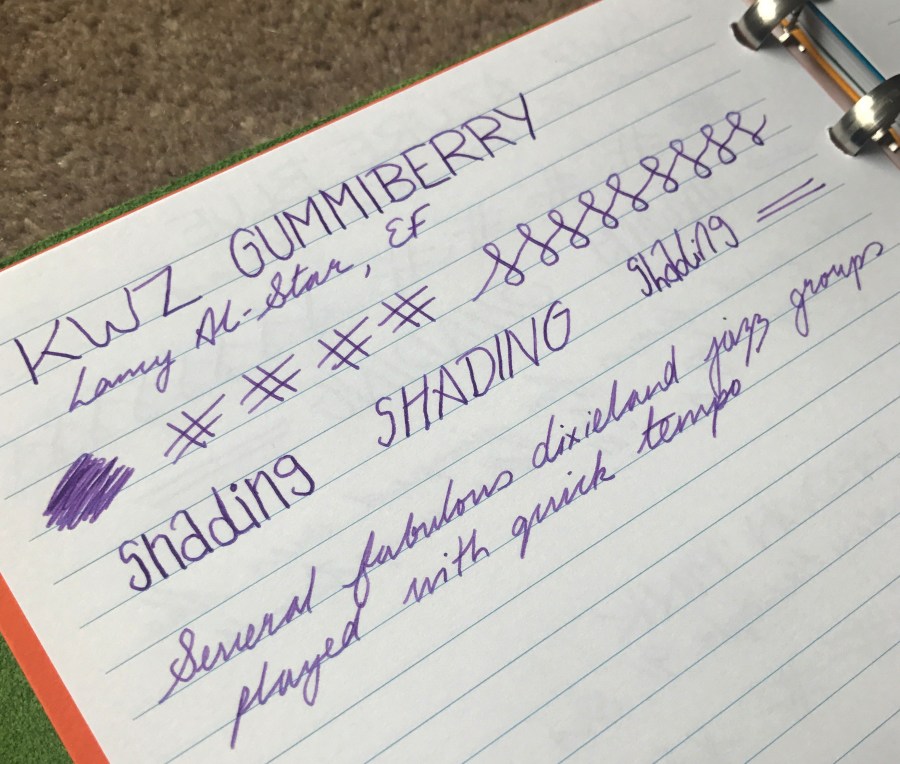 KWZ GUMMIBERRY
Lamy Al-Star, EF
shading SHADING shading
Several fabulous dixieland jazz groups
played with quick tempo